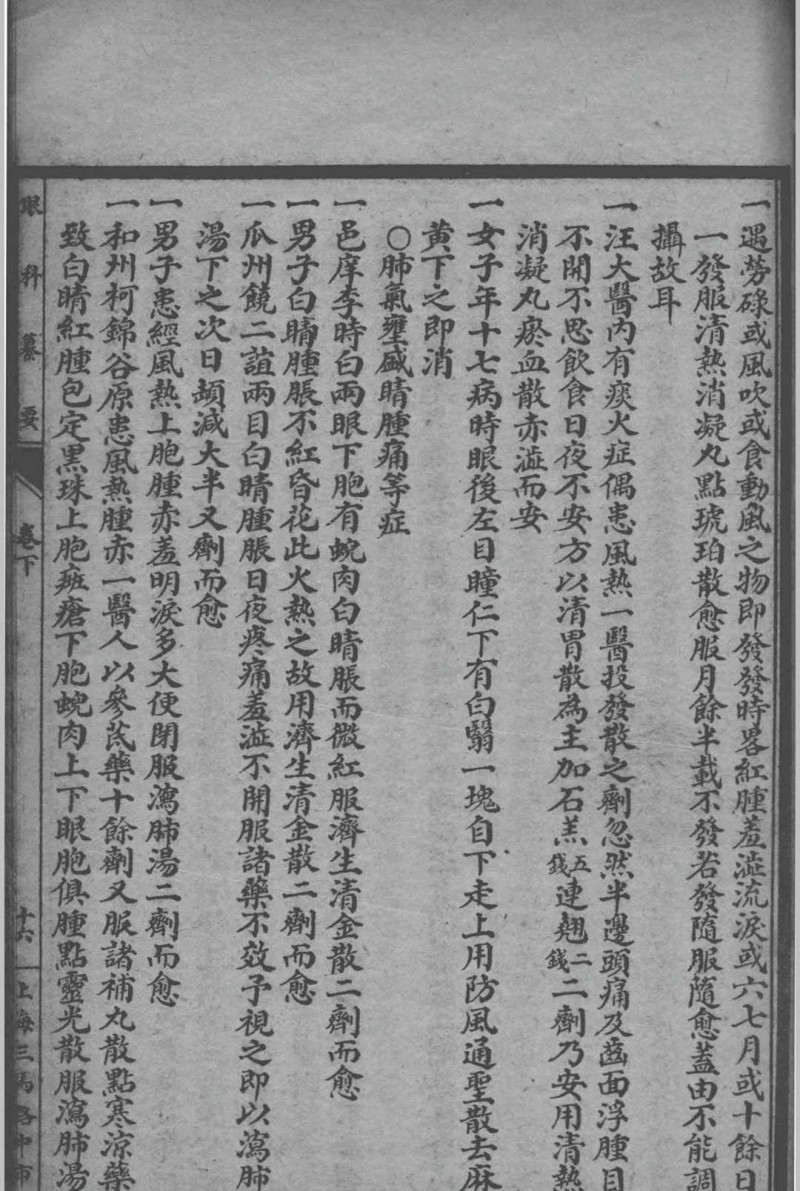 一遇勞碌或風吹或食動風之物即發發時畧紅腫羞澁流淚或六七月或十餘日
一發服清熱消凝丸點琥珀散愈服月餘半載不發若發隨服隨愈蓋由不能調
攝故耳
一汪大醫內有痰火症偶患風熱一醫投發散之劑忽然半邊頭痛及齒面浮腫目
不開不思飲食日夜不安方以清胃散為主加石羔五錢連翹二錢二劑乃安用清熱
消凝丸瘀血散赤澁而安
一女子年十七病時眼後左目瞳仁下有白翳一塊自下走上用防風通聖散去麻
黃下之即消
○肺氣壅盛睛腫痛等症
一邑庠李時白兩眼下胞有蜺肉白睛脹而微紅服濟生清金散二劑而愈
一男子白睛腫脹不紅昏花此火熱之故用濟生清金散二劑而愈
一瓜州饒二誼兩目白睛腫脹日夜疼痛羞澁不開服諸藥不效予視之即以瀉肺
湯下之次日頓減大半又劑而愈
一男子患經風熱上胞腫赤羞明淚多大便閉服瀉肺湯二劑而愈
一和州柯錦谷原患風熱腫赤一醫人以參芪藥十餘劑又服諸補丸散點寒涼藥
致白睛紅腫包定黑珠上胞斑瘡下胞蜺肉上下眼胞俱腫點靈光散服瀉肺湯
眼科纂要 卷下 十六 上海三馬路中市